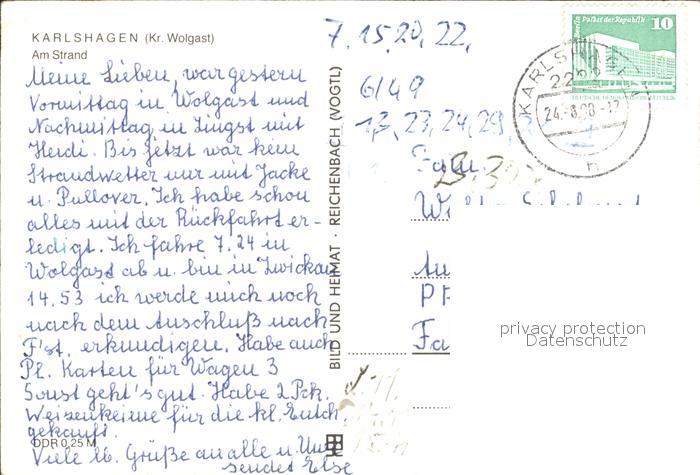 KARLSHAGEN (Kr. Wolgast)
Am Strand
Meine Lieben, war gestern
Vormittag in Wolgast und
Nachmittag in Zingst mit
Heidi. Bis jetzt war kein
Strandwetter nur mit Jacke
u. Pullover. Ich habe schon
alles mit der Rückfahrt er-
ledigt. Ich fahre 7.24 in
Wolgast ab u. bin in Zwickau
14.53 ich werde mich noch
nach dem Anschluß nach
F'st. erkundigen. Habe auch
Pl. Karten für Wagen 3
Sonst geht's gut. Habe 2 Pck.
Weizenkeime für die kl.
gekauft.
Viele lb. Grüße an alle u.
sendet Else
DDR 0,25 M
BILD UND HEIMAT · REICHENBACH (VOGTL)
7. 15. 20, 22,
6/49
13, 23, 24, 29
Fam.
Berlin Palast der Republik
10
KARLSHAGEN
2222
24.-8.80.-12
h
privacy protection
Datenschutz